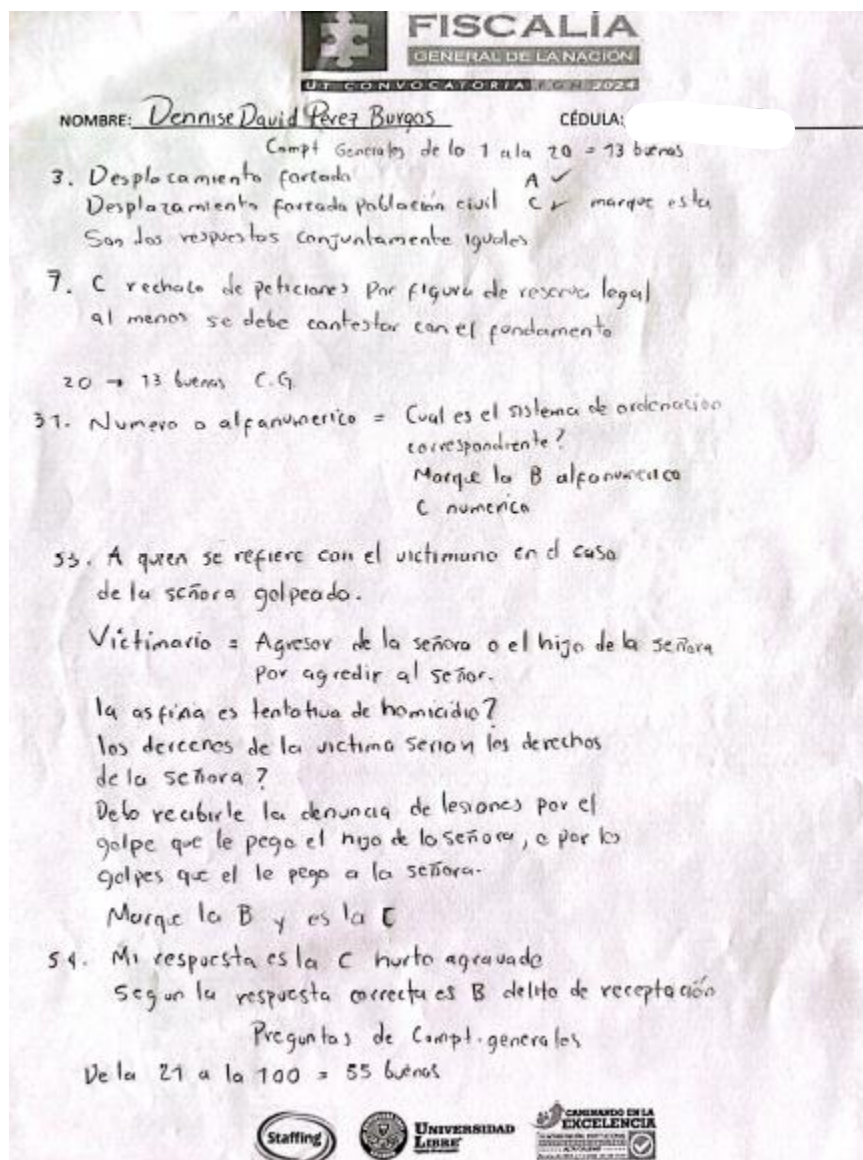 FISCALÍA
GENERAL DE LA NACIÓN
UT CONVOCATORIA FGN 2024
NOMBRE: Dennise David Pérez Burgos CÉDULA:
Compt Generales de lo 1 a la 20 = 13 buenas
3. Desplacamiento forzado A ✓
Desplazamiento forzado población civil C ✓ marque esta
Son dos respuestas conjuntamente iguales
7. C rechazo de peticiones por figura de reserva legal
al menos se debe contestar con el fundamento
20 → 13 buenas C.G.
31. Numero o alfanumerico = Cual es el sistema de ordenacion
correspondiente?
Marque la B alfanumerico
C numerica
53. A quien se refiere con el victimario en el caso
de la señora golpeado.
Victimario = Agresor de la señora o el hijo de la señora
por agredir al señor.
la asfixia es tentativa de homicidio?
los derechos de la victima serian los derechos
de la señora?
Debo recibirle la denuncia de lesiones por el
golpe que le pego el hijo de la señora, o por los
golpes que el le pego a la señora.
Marque la B y es la C
54. Mi respuesta es la C hurto agravado
Segun la respuesta correcta es B delito de receptación
Preguntas de Compt. generales
De la 21 a la 100 = 55 buenas
Staffing
UNIVERSIDAD
LIBRE
CAMINANDO EN LA
EXCELENCIA